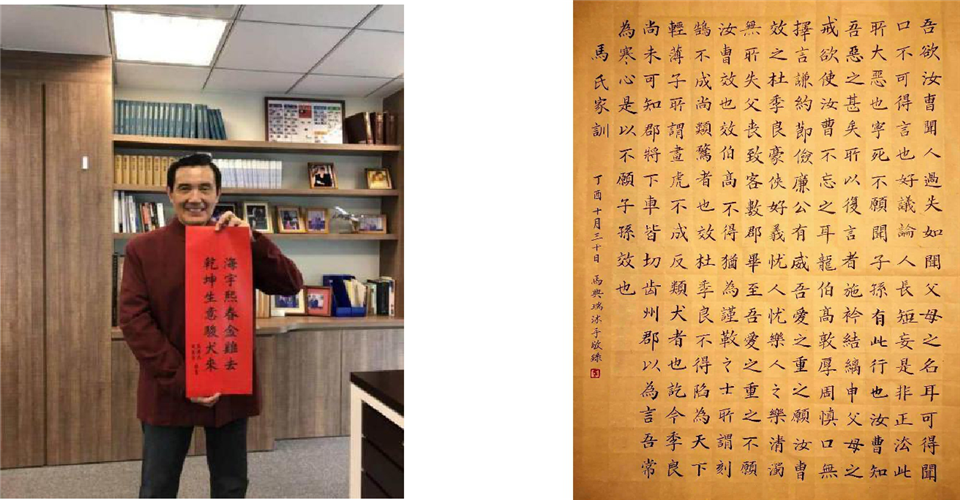 海宇熙春金雞去
乾坤生意駿犬來
吾欲汝曹聞人過失如聞父母之名耳可得聞
口不可得言也好議論人長短妄是非正法此
所大惡也寧死不願聞子孫有此行也汝曹知
吾惡之甚矣所以復言者施衿結縭申父母之
戒欲使汝曹不忘之耳龍伯高敦厚周慎口無
擇言謙約節儉廉公有威吾愛之重之願汝曹
效之杜季良豪俠好義忧人忧樂人々樂清濁
無所失父喪致客數郡畢至吾愛之重之不願
汝曹效也效伯高不得猶為謹敕々士所謂刻
鵠不成尚類鶩者也效杜季良不得陷為天下
輕薄子所謂畫虎不成反類犬者也訖今季良
尚未可知郡將下車皆切齿州郡以為言吾常
為寒心是以不願子孫效也
馬氏家訓
丁酉十月三十日 馬興瑞沐手敬錄